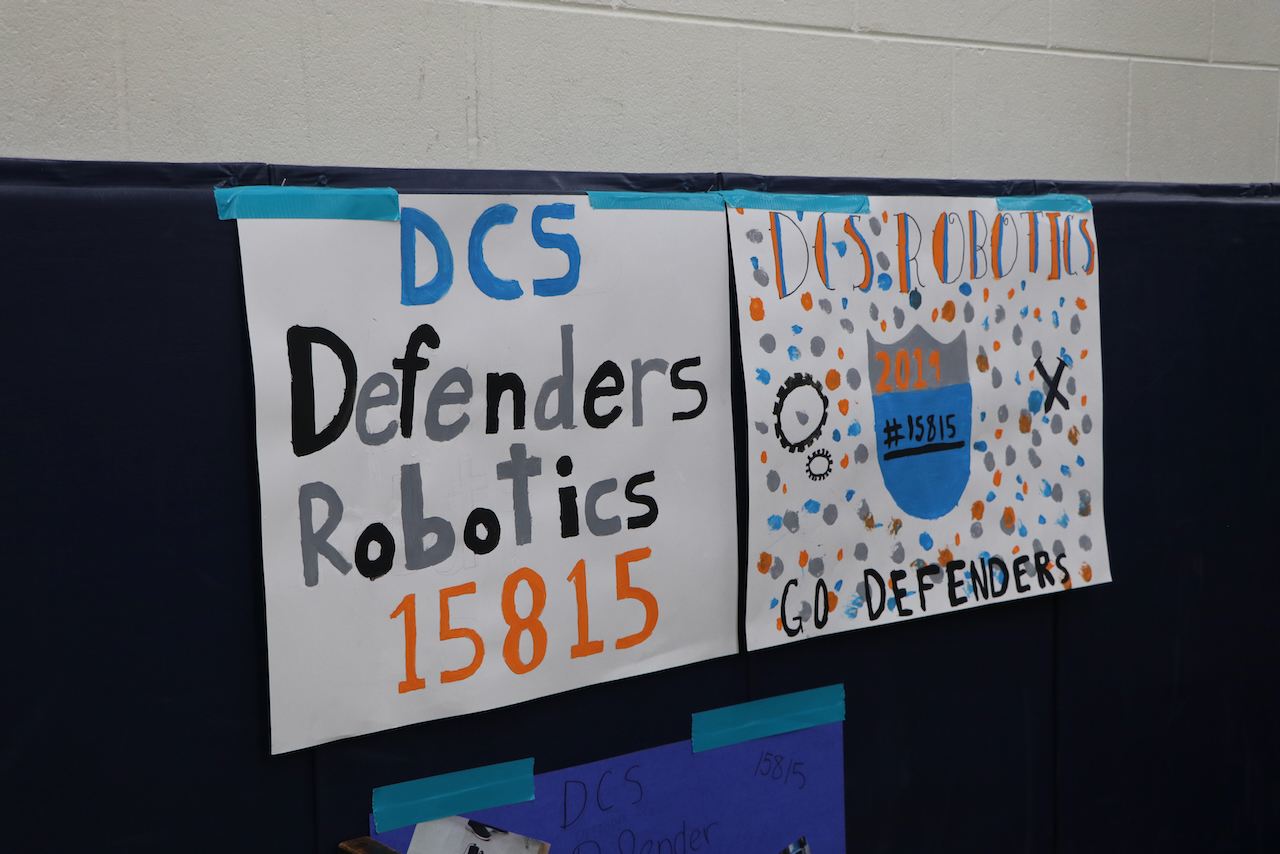 DCS
Defenders
Robotics
15815
DCS ROBOTICS
2019
#15815
X
GO DEFENDERS
DCS
15815